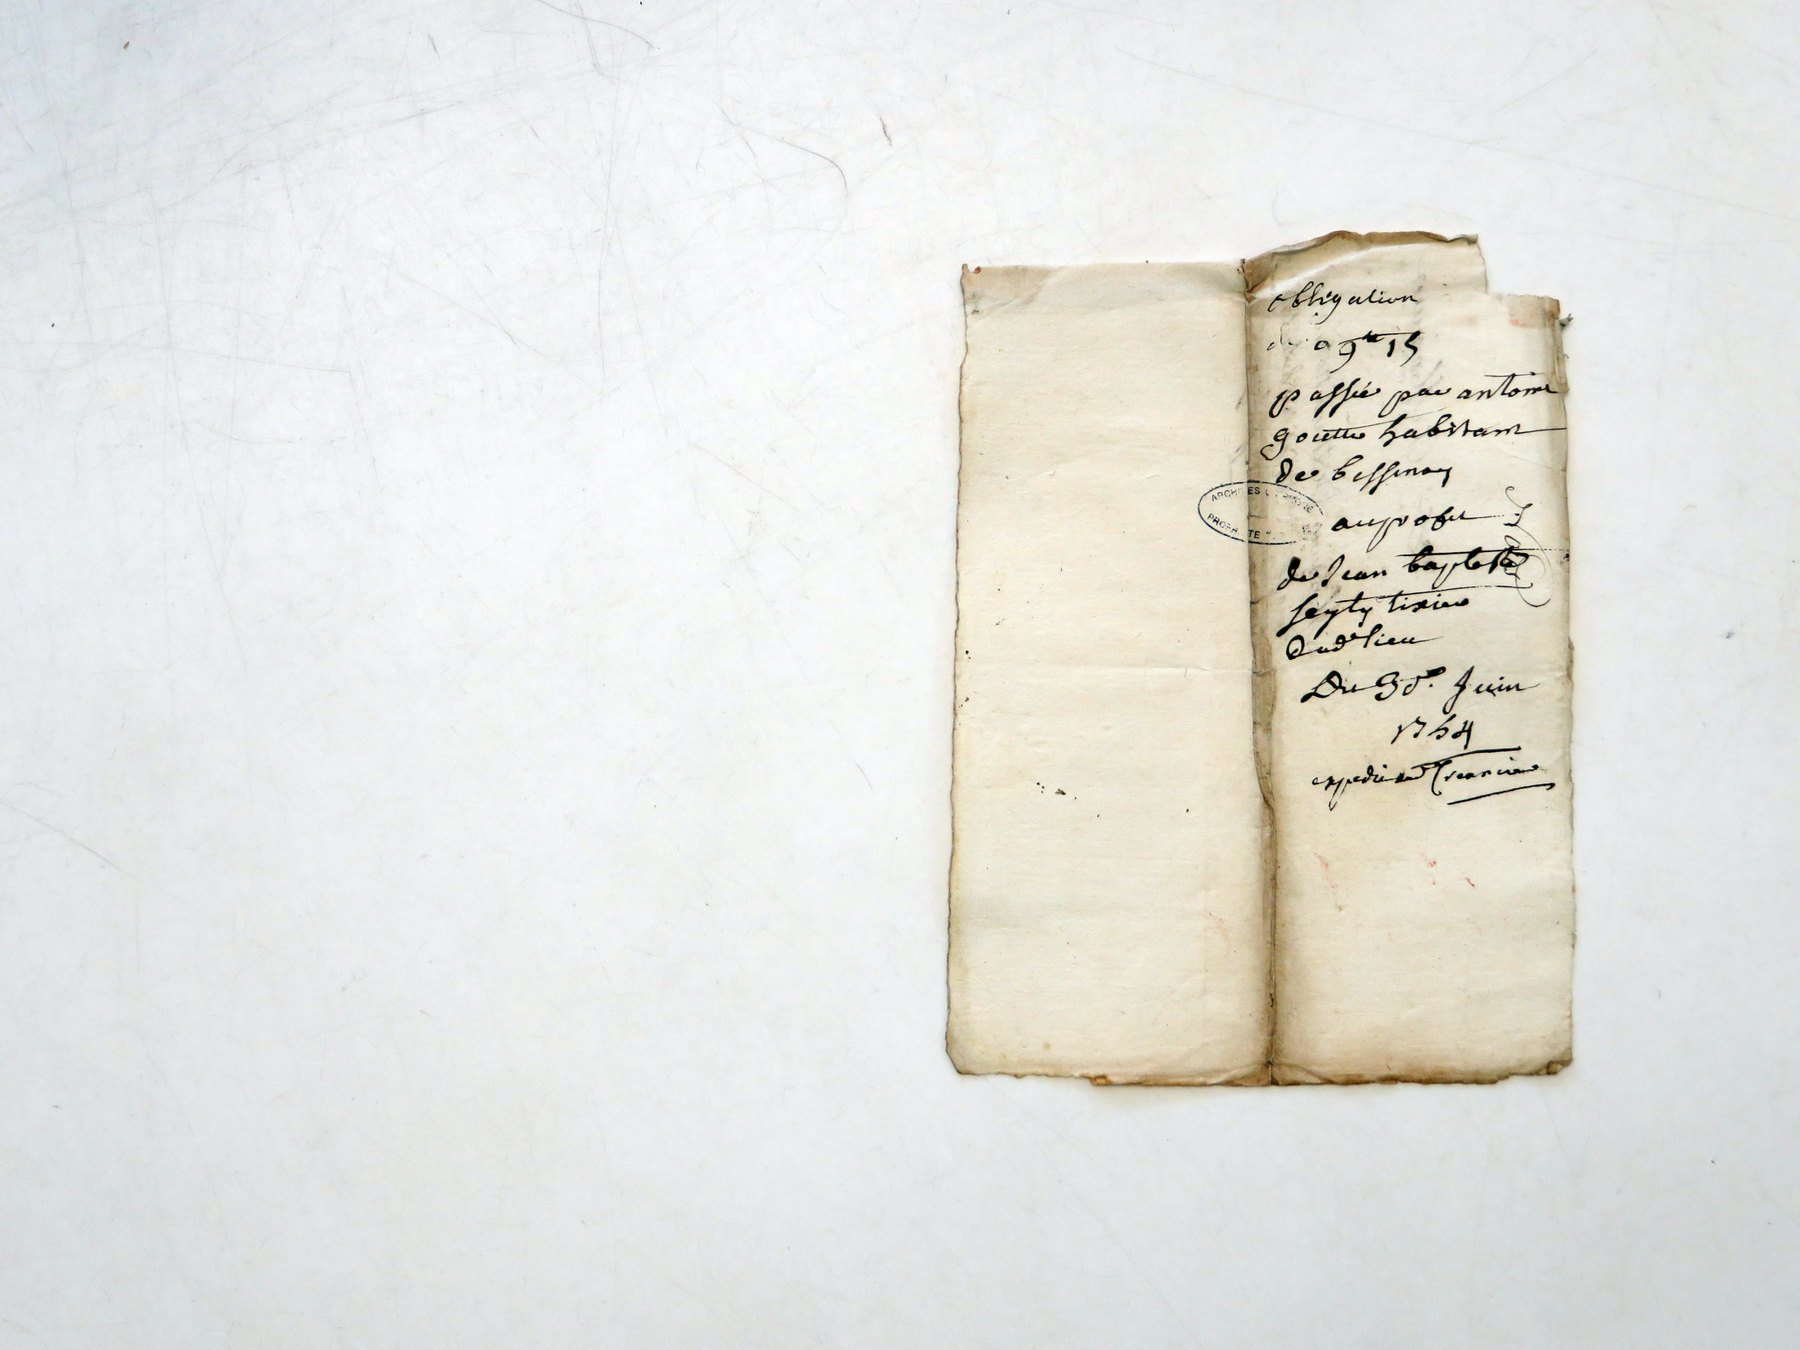 obligation
de 9tt 15
passée par antoine
goutte habitant
de bessenay
au profit
de Jean baptiste
tixier
dud lieu
Du 30e Juin
1754
ARCHIVES
PROPRIETE